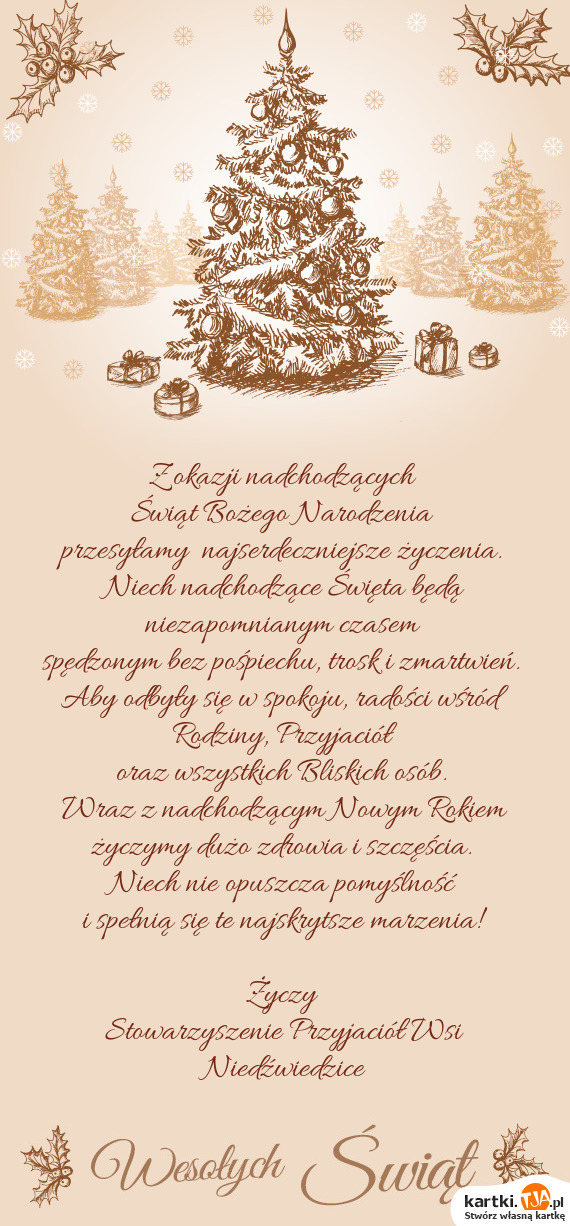 Z okazji nadchodzących
Świąt Bożego Narodzenia
przesyłamy najserdeczniejsze życzenia.
Niech nadchodzące Święta będą
niezapomnianym czasem
spędzonym bez pośpiechu, trosk i zmartwień.
Aby odbyły się w spokoju, radości wśród
Rodziny, Przyjaciół
oraz wszystkich Bliskich osób.
Wraz z nadchodzącym Nowym Rokiem
życzymy dużo zdrowia i szczęścia.
Niech nie opuszcza pomyślność
i spełnią się te najskrytsze marzenia!
Życzy
Stowarzyszenie Przyjaciół Wsi
Niedźwiedzice
Wesołych Świąt
kartki.TJA.pl
Stwórz własną kartkę